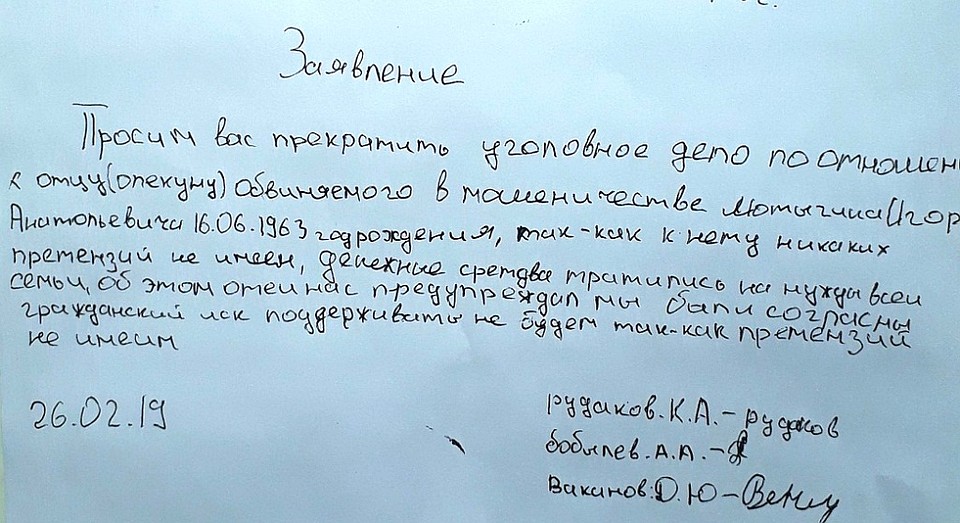 Заявление
Просим вас прекратить уголовное дело по отношен
к отцу(опекуну) обвиняемого в мошеничестве Лютыгина Игор
Анатольевича 16.06.1963 год рождения, так-как к нему никаких
претензий не имеем, денежные сретдва тратились на нужда всей
семьи, об этом отец нас предупреждал мы были согласны
гражданский иск поддерживать не будем так-как претензий
не имеим
26.02.19
рудаков.К.А.-рудаков
бобылев.А.А.-
Ваканов.Д.Ю-